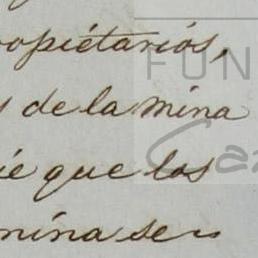 ropietarios,
s de la mina
ie que los
mina se
FUN
Ca